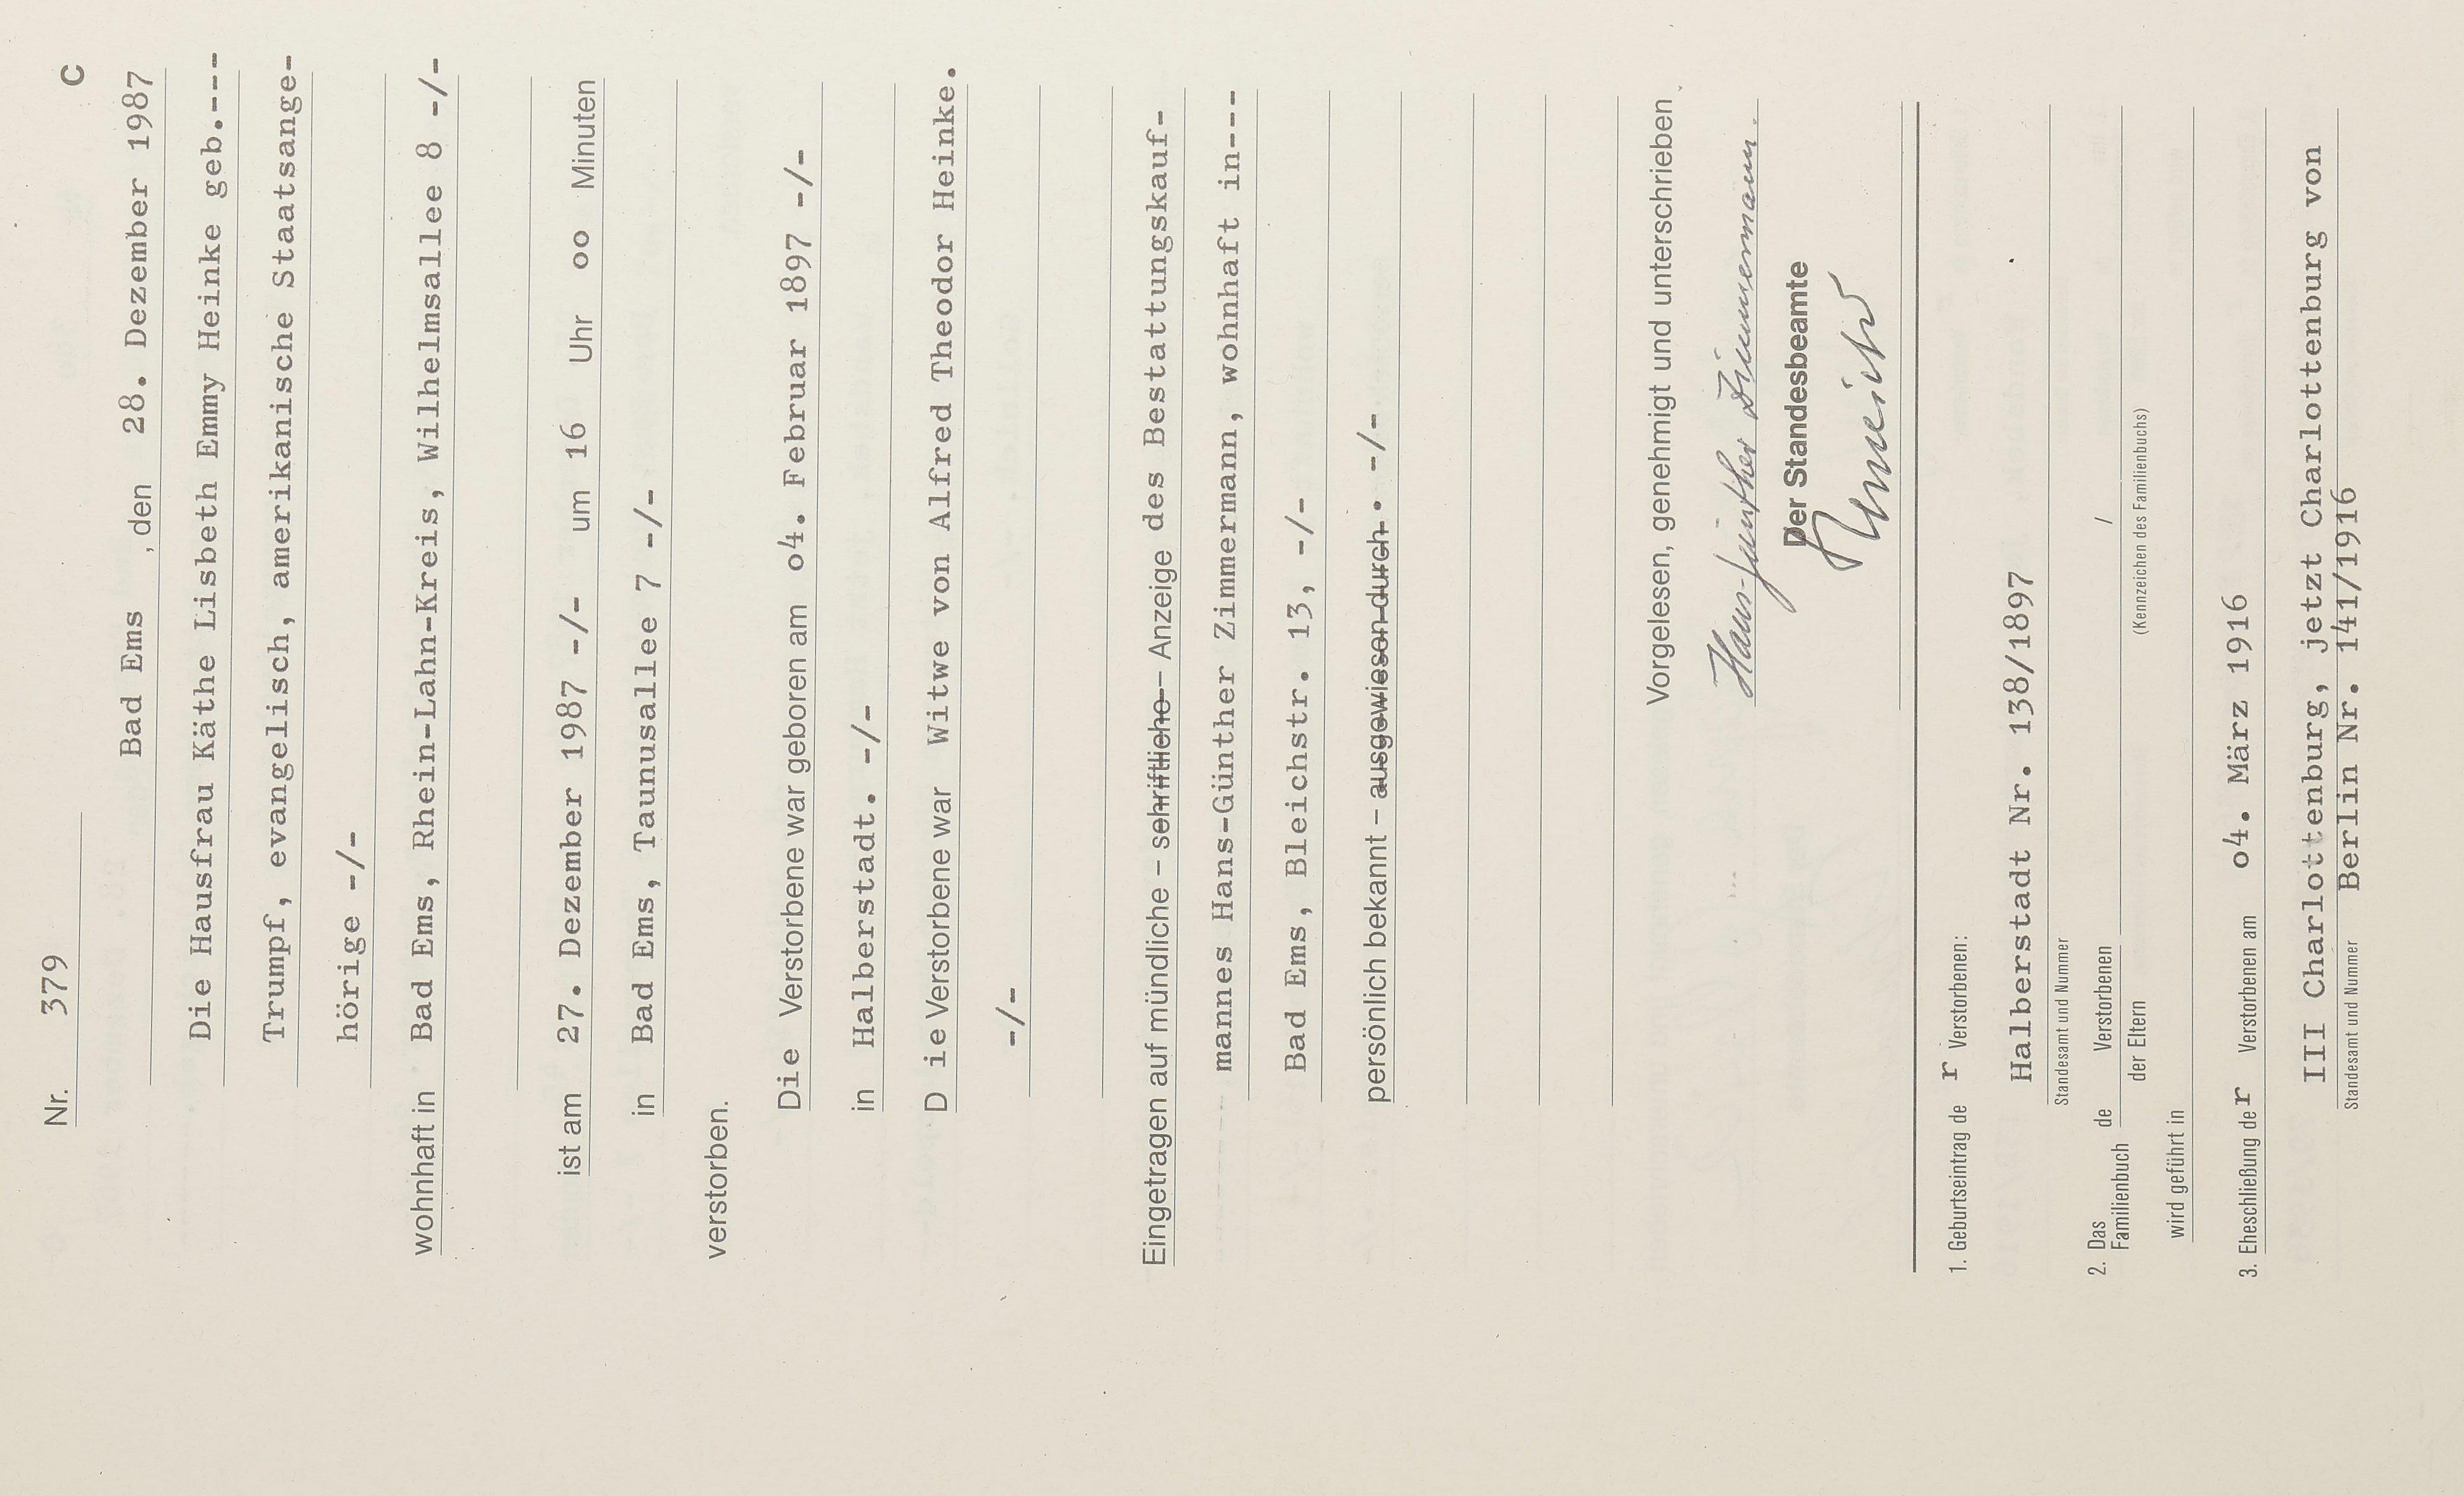 Nr. 379 C
Bad Ems , den 28. Dezember 1987
Die Hausfrau Käthe Lisbeth Emmy Heinke geb.---
Trumpf, evangelisch, amerikanische Staatsange-
hörige -/-
wohnhaft in Bad Ems, Rhein-Lahn-Kreis, Wilhelmsallee 8 -/-
ist am 27. Dezember 1987 -/- um 16 Uhr oo Minuten
in Bad Ems, Taunusallee 7 -/-
verstorben.
Die Verstorbene war geboren am o4. Februar 1897 -/-
in Halberstadt. -/-
D ie Verstorbene war Witwe von Alfred Theodor Heinke.
-/-
Eingetragen auf mündliche – schriftliche – Anzeige des Bestattungskauf-
mannes Hans-Günther Zimmermann, wohnhaft in---
Bad Ems, Bleichstr. 13, -/-
persönlich bekannt – ausgewiesen durch. -/-
Vorgelesen, genehmigt und unterschrieben
Hans-Günther Zimmermann.
Der Standesbeamte
1. Geburtseintrag de r Verstorbenen:
Halberstadt Nr. 138/1897
Standesamt und Nummer
2. Das Familienbuch de Verstorbenen / der Eltern /
(Kennzeichen des Familienbuchs)
wird geführt in
3. Eheschließung de r Verstorbenen am o4. März 1916
III Charlottenburg, jetzt Charlottenburg von
Standesamt und Nummer Berlin Nr. 141/1916